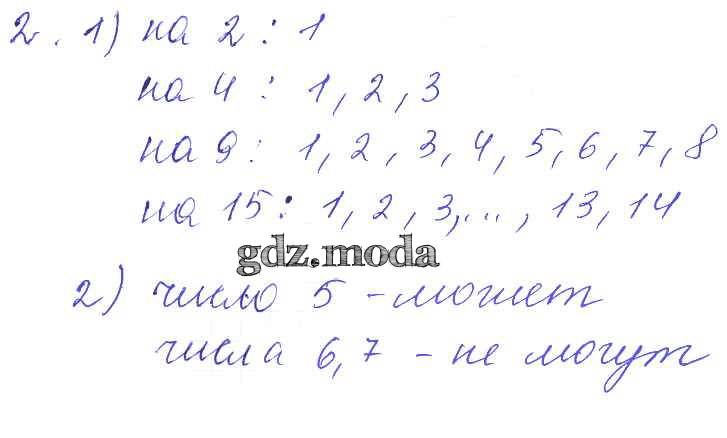 2. 1) на 2 : 1
на 4 : 1, 2, 3
на 9 : 1, 2, 3, 4, 5, 6, 7, 8
на 15 : 1, 2, 3, ..., 13, 14
gdz.moda
2) число 5 - может
числа 6, 7 - не могут